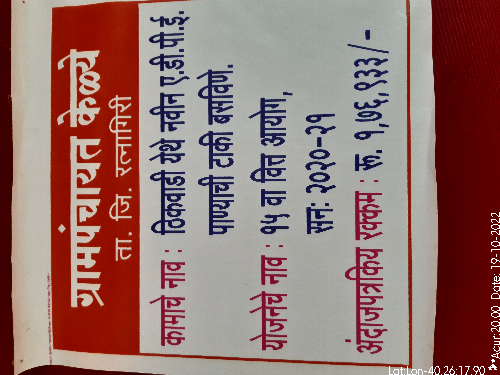 ग्रामपंचायत केळ्ये
ता. जि. रत्नागिरी
कामाचे नाव : ठिकवाडी येथे नवीन ए.डी.पी.ई.
पाण्याची टाकी बसविणे.
योजनेचे नाव : १५ वा वित्त आयोग,
सन: २०२०-२१
अंदाजपत्रकिय रक्कम : रू. १,७६,९३३/-
Lat Lon-40.26:17.90
**Acur:20.00 Date: 19-10-2022